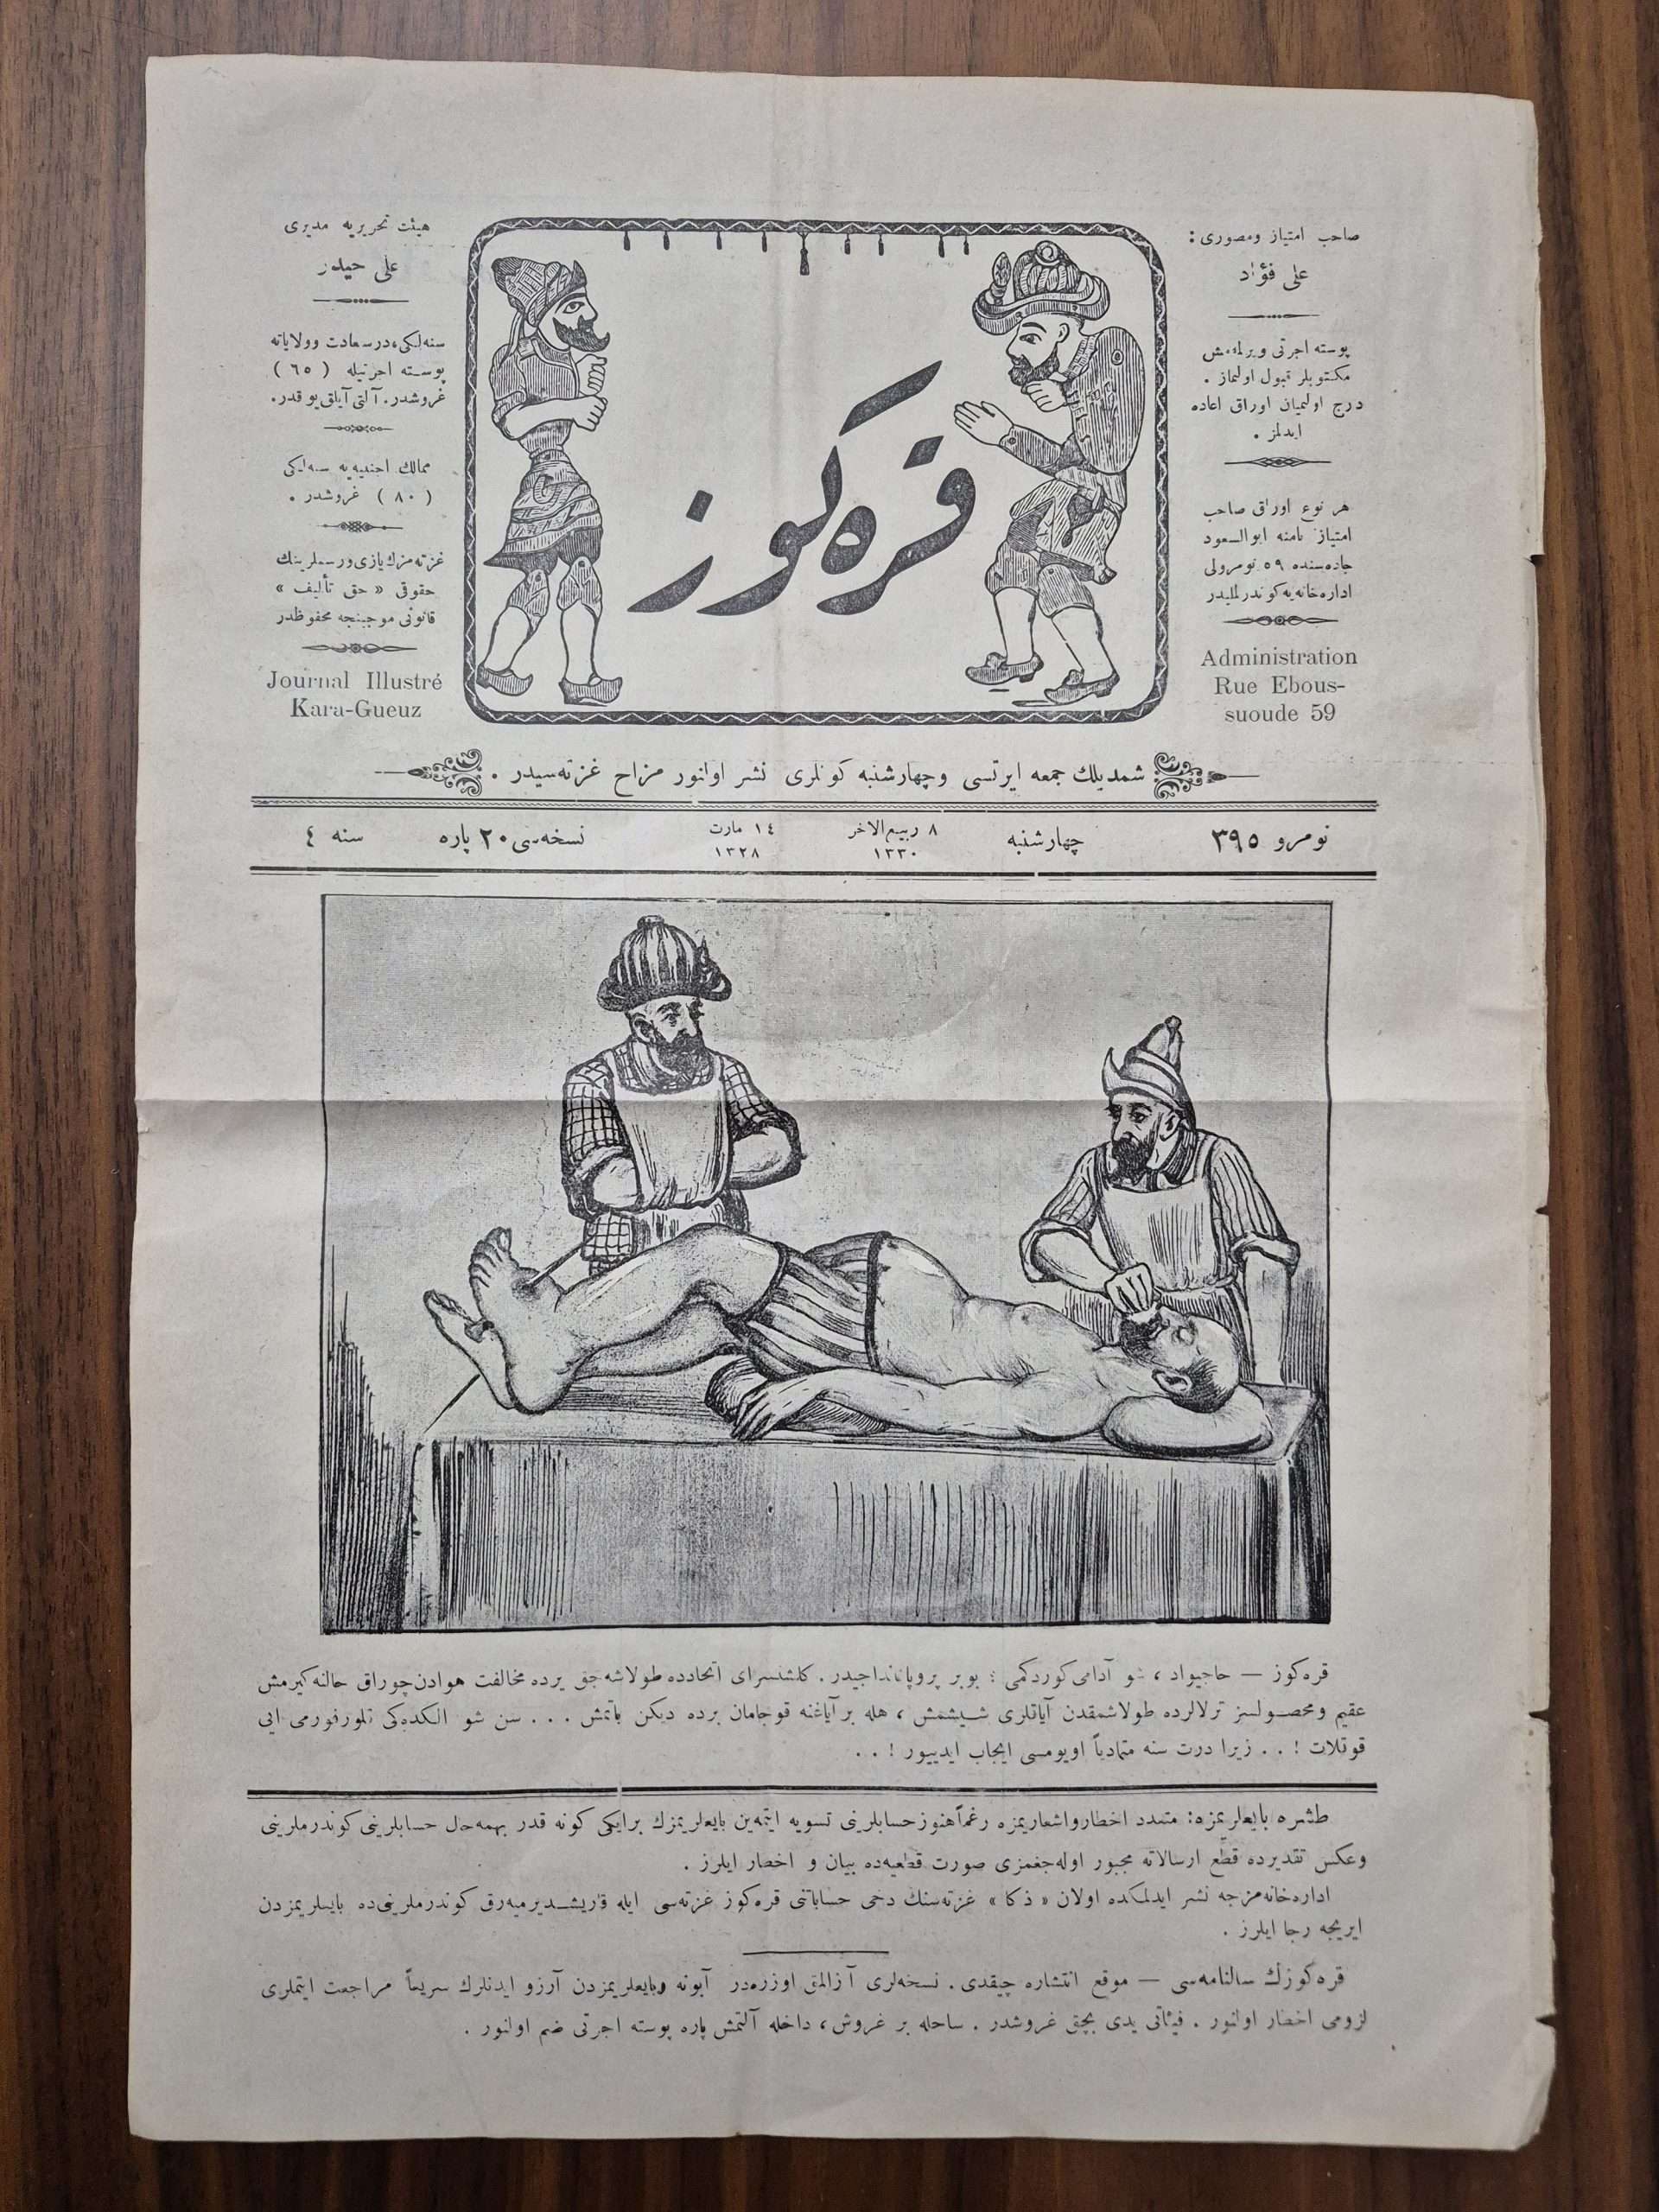 صاحب امتیاز ومصوری :
علی فؤاد
پوسته اجرتی ویرلمه‌مش
مكتوبلر قبول اولنماز .
درج اولنمیان اوراق اعاده
ایدلمز .
هر نوع اوراق صاحب
امتیاز نامنه ابوالسعود
جاده‌سنده ٥٩ نومرولی
اداره‌خانه‌یه كوندرلملیدر
Administration
Rue Ebous-
suoude 59
قره‌كوز
هیئت تحریریه مدیری
علی حیدر
سنه‌لكی ، درسعادت وولایاته
پوسته اجرتیله ( ٦٥ )
غروشدر . آلتی آیلق یوقدر .
ممالك اجنبیه‌یه سنه‌لكی
( ٨٠ ) غروشدر .
غزته‌مزك یازی ورسملرینك
حقوقی « حق تألیف »
قانونی موجبنجه محفوظدر
Journal Illustré
Kara-Gueuz
شمدیلك جمعه ایرتسی وچهارشنبه كونلری نشر اولنور مزاح غزته‌سیدر .
نومرو ٣٩٥ چهارشنبه ٨ ربیع‌الاخر ١٣٣٠ ١٤ مارت ١٣٢٨ نسخه‌سی ٢٠ پاره سنه ٤
قره‌كوز — حاجیواد ، شو آدامی كوردكمی ؛ بو بر پروپاغانداجیدر . كلشنسرای اتحادده طولاشه‌جق یرده مخالفت هوادن چوراق حالنه كیرمش
عقیم ومحصولسز ترلالرده طولاشمقدن آیاقلری شیشمش ، هله بر آیاغنه قوجامان برده دیكن باتمش . . . سن شو الكده‌كی قلوروفورمی ایی
قوقلات ! . . زیرا درت سنه متمادیاً اویومسی ایجاب ایدییور ! . .
طشره بایعلریمزه : متعدد اخطار واشعاریمزه رغماً هنوز حسابلرینی تسویه ایتمه‌ین بایعلریمزك برایكی كونه قدر بهمه‌حال حسابلرینی كوندرملرینی
وعكس تقدیرده قطع ارسالاته مجبور اوله‌جغمزی صورت قطعیه‌ده بیان و اخطار ایلرز .
اداره‌خانه‌مزجه نشر ایدلمكده اولان « ذكا » غزته‌سنك دخی حساباتنی قره‌كوز غزته‌سی ایله قاریشدیرمیه‌رق كوندرملرینی‌ده بایعلریمزدن
ایریجه رجا ایلرز .
قره‌كوزك سالنامه‌سی — موقع انتشاره چیقدی . نسخه‌لری آزالمق اوزره‌در آبونه وبایعلریمزدن آرزو ایدنلرك سریعاً مراجعت ایتملری
لزومی اخطار اولنور . فیئاتی یدی بچق غروشدر . ساحله بر غروش ، داخله آلتمش پاره پوسته اجرتی ضم اولنور .